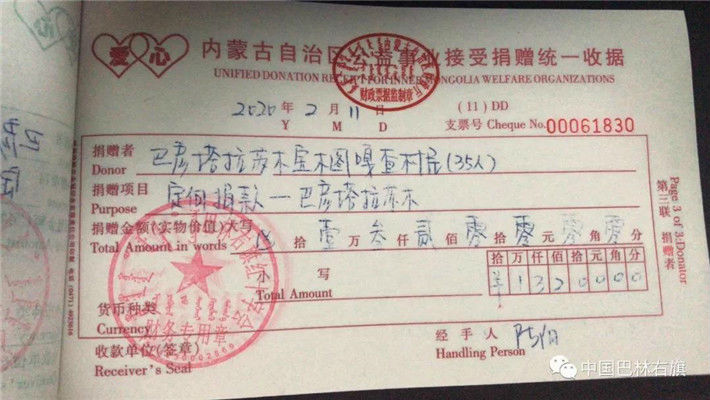 爱心
内蒙古自治区公益事业接受捐赠统一收据
UNIFIED DONATION RECEIPT FOR INNER MONGOLIA WELFARE ORGANIZATIONS
财政票据监制章
2020 年 2 月 11 日 (11) DD
Y M D 支票号 Cheque No. 00061830
捐赠者 巴彦塔拉苏木金木图嘎查村民(35人)
Donor
捐赠项目 定向捐款—巴彦塔拉苏木
Purpose
捐赠金额(实物价值)大写 拾 壹 万 叁 仟 贰 佰 零 拾 零 元 零 角 零 分
Total Amount in words
小写 拾 万 仟 佰 拾 元 角 分
Total Amount ¥ 1 3 2 0 0 0 0
货币种类
Currency
财务专用章
收款单位(签章) 经手人
Receiver's Seal Handling Person
Page 3 of 3:Donator
第三联 捐赠者
中国巴林右旗